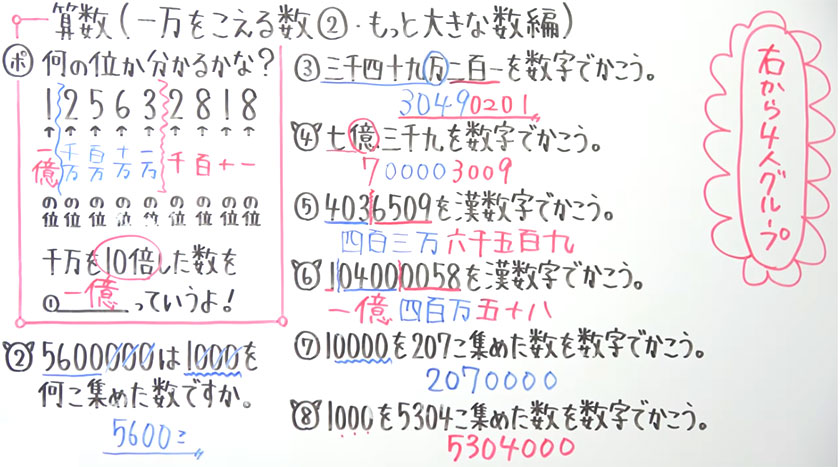 算数(一万をこえる数②・もっと大きな数編)
ポ 何の位か分かるかな?
125632818
↑↑↑↑↑↑↑↑↑
一億 千万 百万 十万 一万 千 百 十 一
の位 の位 の位 の位 の位 の位 の位 の位 の位
千万を10倍した数を
①一億っていうよ!
②5600000は1000を
何こ集めた数ですか。
5600こ
③三千四十九万二百一を数字でかこう。
30490201
④七億三千九を数字でかこう。
700003009
⑤4036509を漢数字でかこう。
四百三万六千五百九
⑥104000058を漢数字でかこう。
一億四百万五十八
⑦10000を207こ集めた数を数字でかこう。
2070000
⑧1000を5304こ集めた数を数字でかこう。
5304000
右から4人グループ